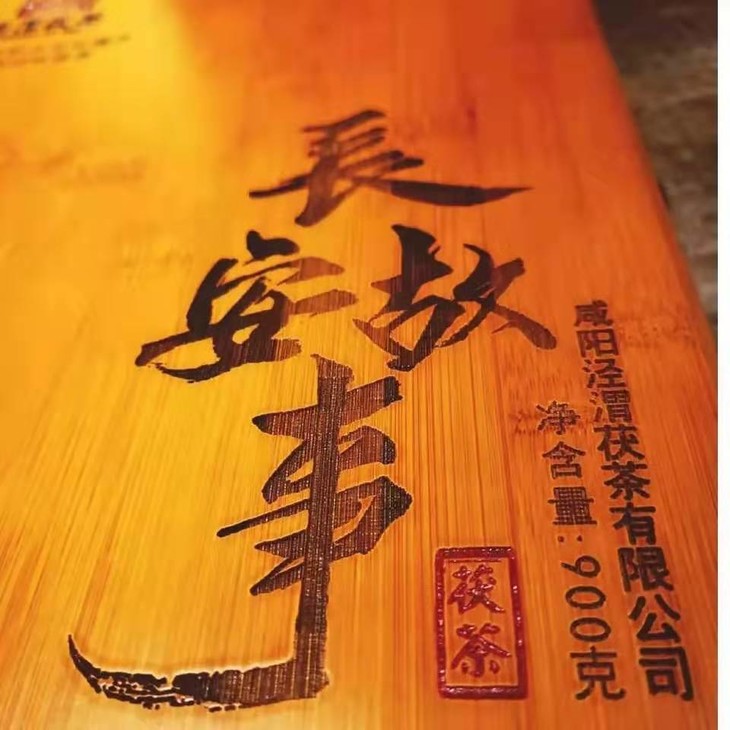 長安故事
咸阳泾渭茯茶有限公司
净含量:900克
茯茶